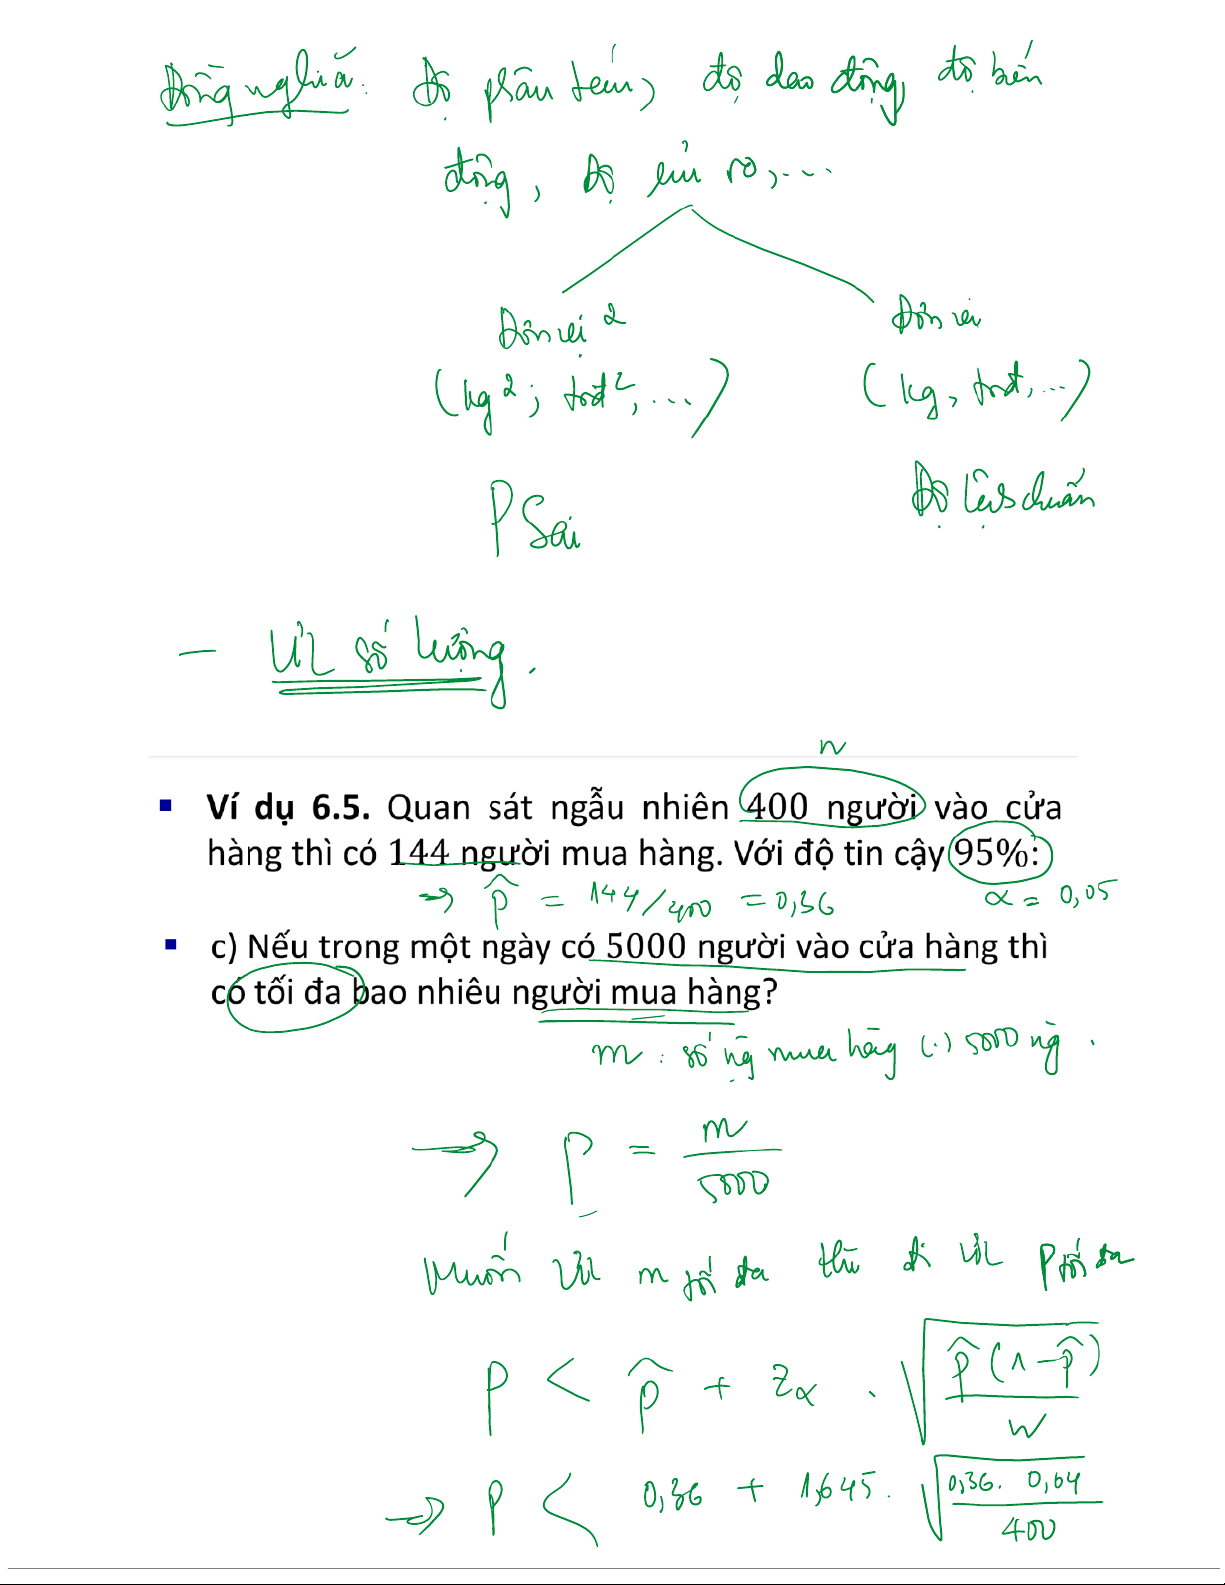 Đồng nghĩa: độ phân tán, độ dao động, độ biến
động, độ rủi ro,...
Đơn vị² Đơn vị
(kg²; trđ²,...) (kg, trđ,...)
P Sai Độ lệch chuẩn
- ƯL số lượng.
n
▪ Ví dụ 6.5. Quan sát ngẫu nhiên 400 người vào cửa
hàng thì có 144 người mua hàng. Với độ tin cậy 95%:
→ p̂ = 144/400 = 0,36 α = 0,05
▪ c) Nếu trong một ngày có 5000 người vào cửa hàng thì
có tối đa bao nhiêu người mua hàng?
m : số ng mua hàng (.) 5000 ng .
→ P = m / 5000
Muốn ƯL m tối đa thì đi ƯL P tối đa
P < p̂ + z_α . √(p̂(1-p̂) / n)
⇒ P < 0,36 + 1,645. √(0,36. 0,64 / 400)